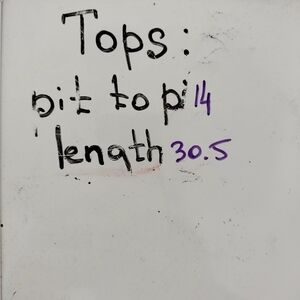 Tops:
pit to pi 14
length 30.5